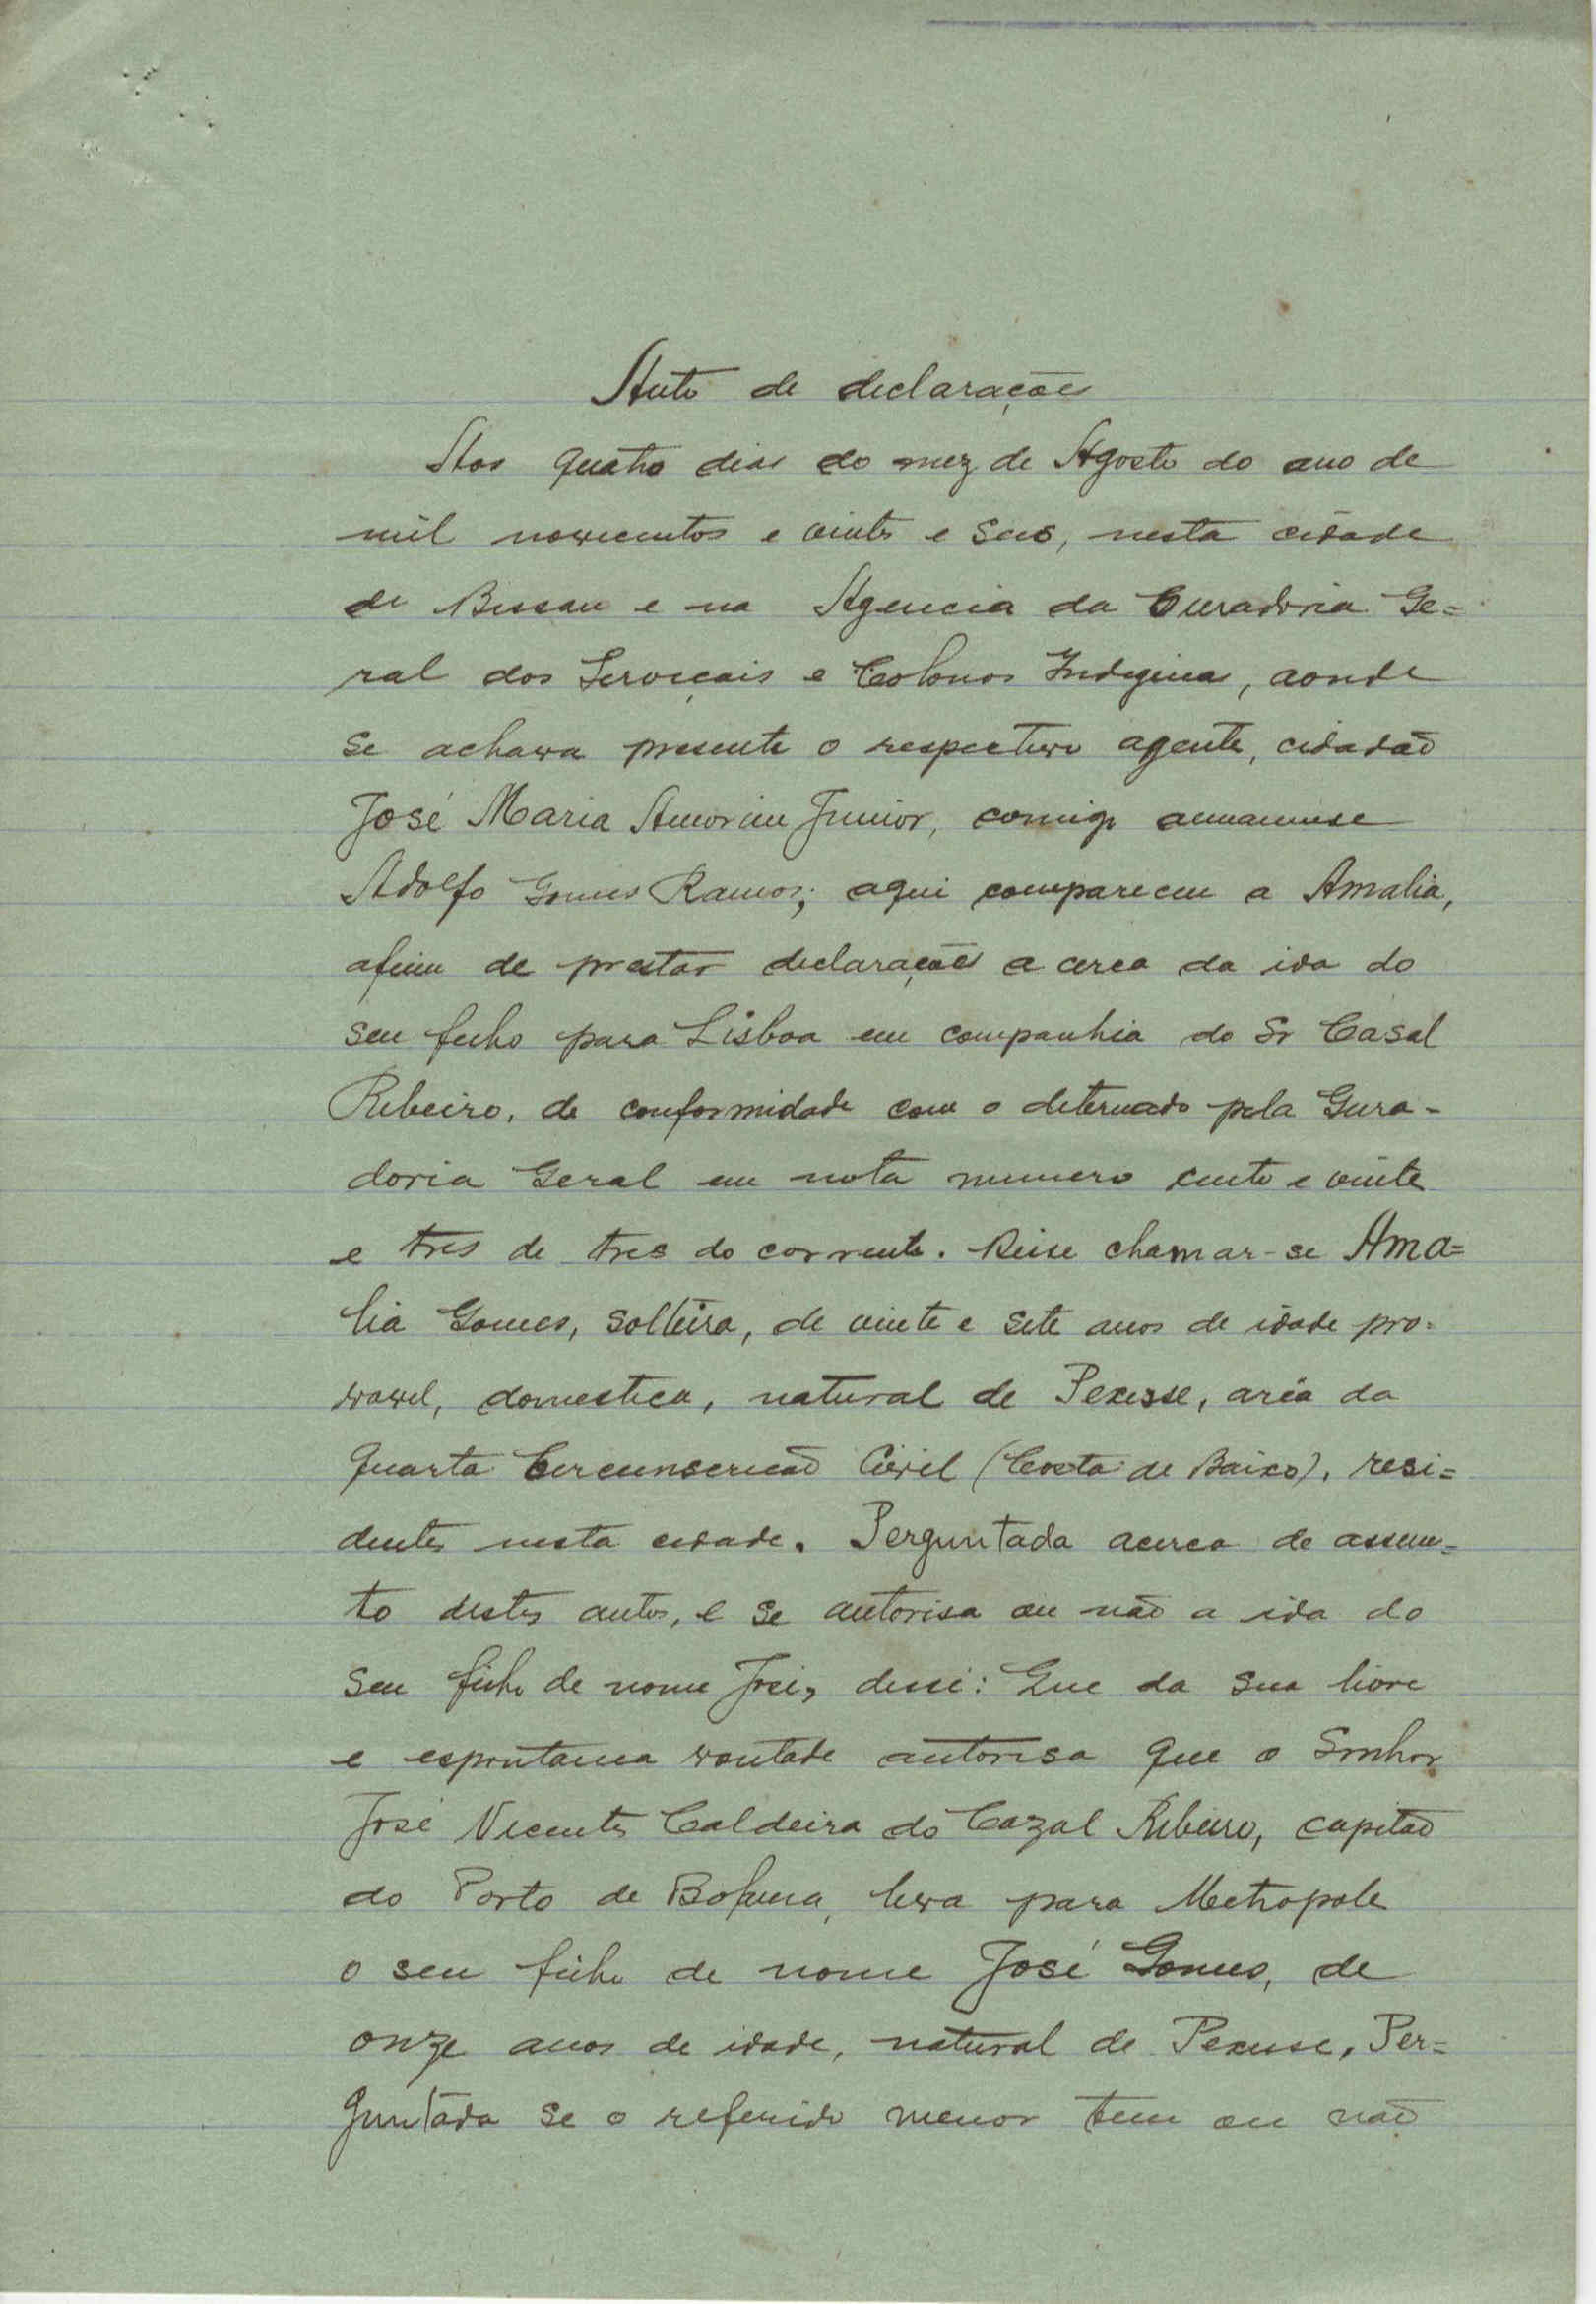 Auto de declarações
Aos quatro dias do mez de Agosto do ano de
mil novecentos e vinte e seis, nesta cidade
de Bissau e na Agencia da Curadoria Ge=
ral dos Serviçais e Colonos Indigenas, aonde
se achava presente o respectivo agente, cidadão
José Maria Amorim Junior, comigo amanuense
Adolfo Gomes Ramos; aqui compareceu a Amalia,
afim de prestar declarações a cerca da ida do
seu filho para Lisboa em companhia do Sr Casal
Ribeiro, de conformidade com o determado pela Cura-
doria Geral em nota numero cento e vinte
e tres de tres do corrente. Disse chamar-se Ama=
lia Gomes, solteira, de vinte e sete anos de idade pro=
vavel, domestica, natural de Pexisse, aréa da
quarta Circunscricão Civil (Costa de Baixo), resi=
dente nesta cidade. Perguntada acerca de assun=
to destes autos, e se autorisa ou não a ida do
seu filho de nome José, disse: Que da sua livre
e espontanea vontade autorisa que o Senhor
José Vicente Caldeira do Cazal Ribeiro, capitão
do Porto de Bolama, leva para Metropole
o seu filho de nome José Gomes, de
onze anos de idade, natural de Pexisse, Per=
guntada se o referido menor tem ou não